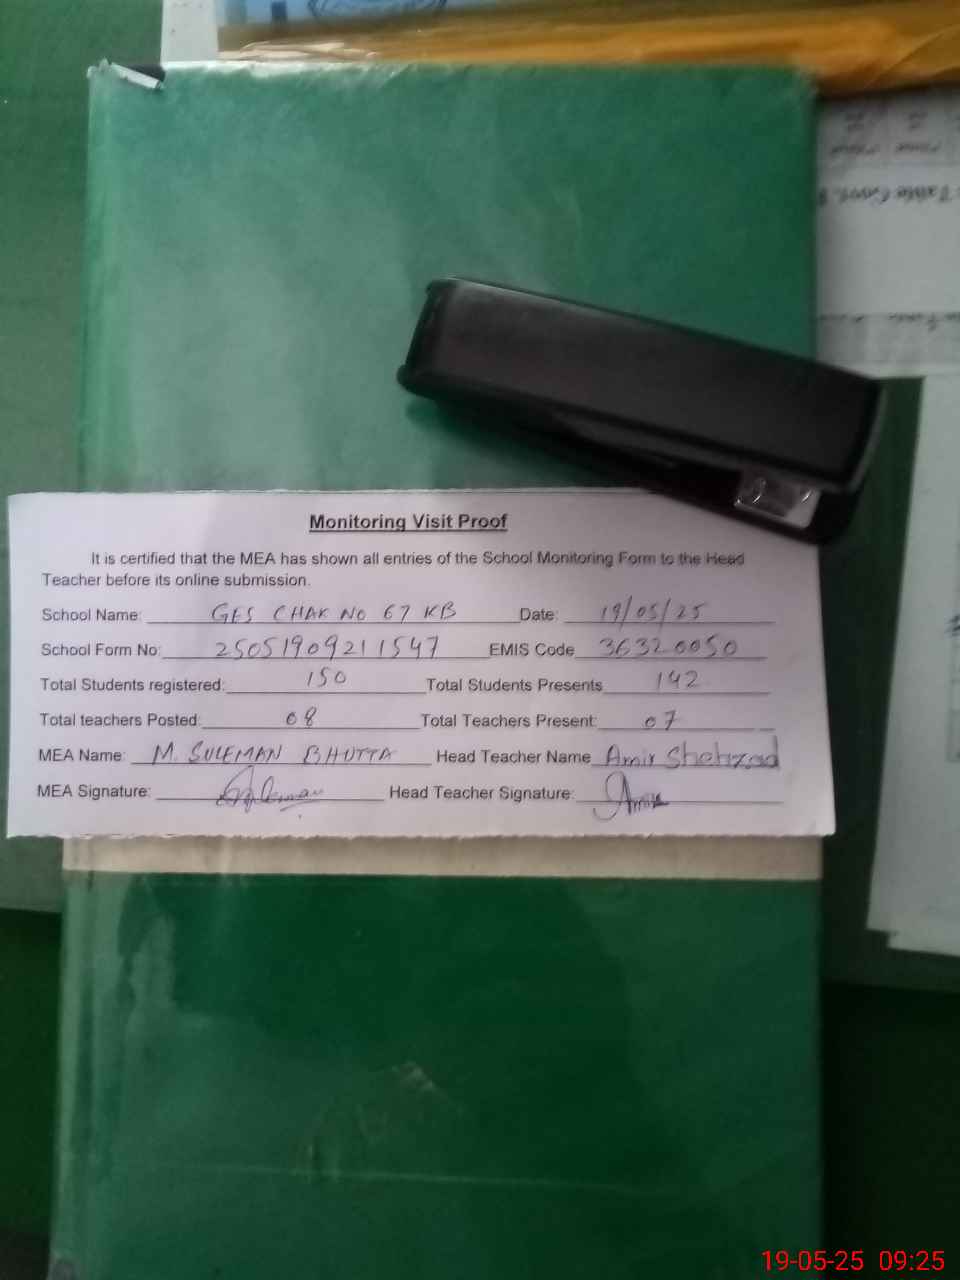 Monitoring Visit Proof
It is certified that the MEA has shown all entries of the School Monitoring Form to the Head
Teacher before its online submission.
School Name: GES CHAK NO 67 KB Date: 19/05/25
School Form No: 25051909211547 EMIS Code 36320050
Total Students registered: 150 Total Students Presents 142
Total teachers Posted: 08 Total Teachers Present: 07
MEA Name: M. SULEMAN BHUTTA Head Teacher Name Amir Shehzad
MEA Signature: Suleman Head Teacher Signature: Amir
19-05-25 09:25